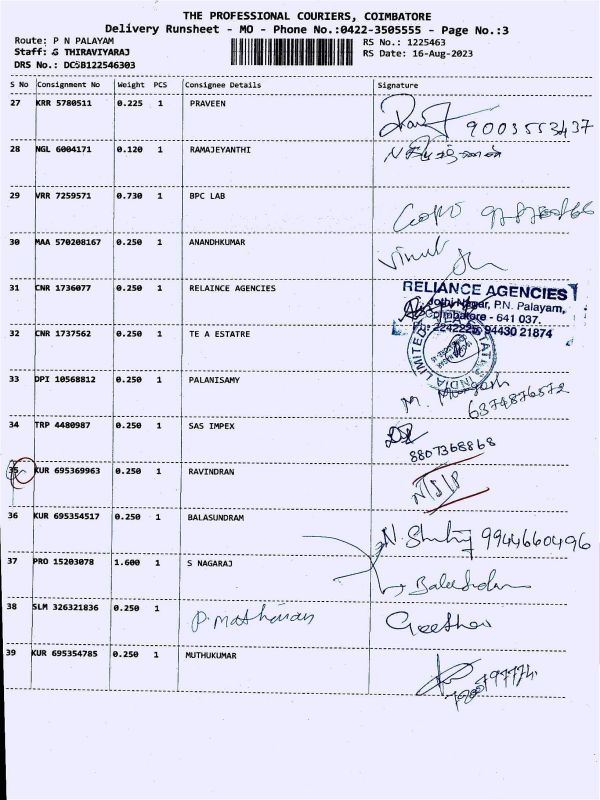 THE PROFESSIONAL COURIERS, COIMBATORE
Delivery Runsheet - MO - Phone No.:0422-3505555 - Page No.:3
Route: P N PALAYAM
RS No.: 1225463
Staff: S THIRAVIYARAJ
RS Date: 16-Aug-2023
DRS No.: DCSB122546303
S No Consignment No Weight PCS Consignee Details Signature
27 KRR 5780511 0.225 1 PRAVEEN
9003553437
28 NGL 6004171 0.120 1 RAMAJEYANTHI
29 VRR 7259571 0.730 1 BPC LAB
30 MAA 570208167 0.250 1 ANANDHKUMAR
31 CNR 1736077 0.250 1 RELAINCE AGENCIES
RELIANCE AGENCIES
Jothi Nagar, P.N. Palayam,
Coimbatore - 641 037.
Ph: 2242225, 94430 21874
32 CNR 1737562 0.250 1 TE A ESTATRE
33 DPI 10568812 0.250 1 PALANISAMY
6374876572
34 TRP 4480987 0.250 1 SAS IMPEX
8807368868
35 KUR 695369963 0.250 1 RAVINDRAN
36 KUR 695354517 0.250 1 BALASUNDRAM
9944660496
37 PRO 15203078 1.600 1 S NAGARAJ
38 SLM 326321836 0.250 1 P. Mathavan Geetha
39 KUR 695354785 0.250 1 MUTHUKUMAR